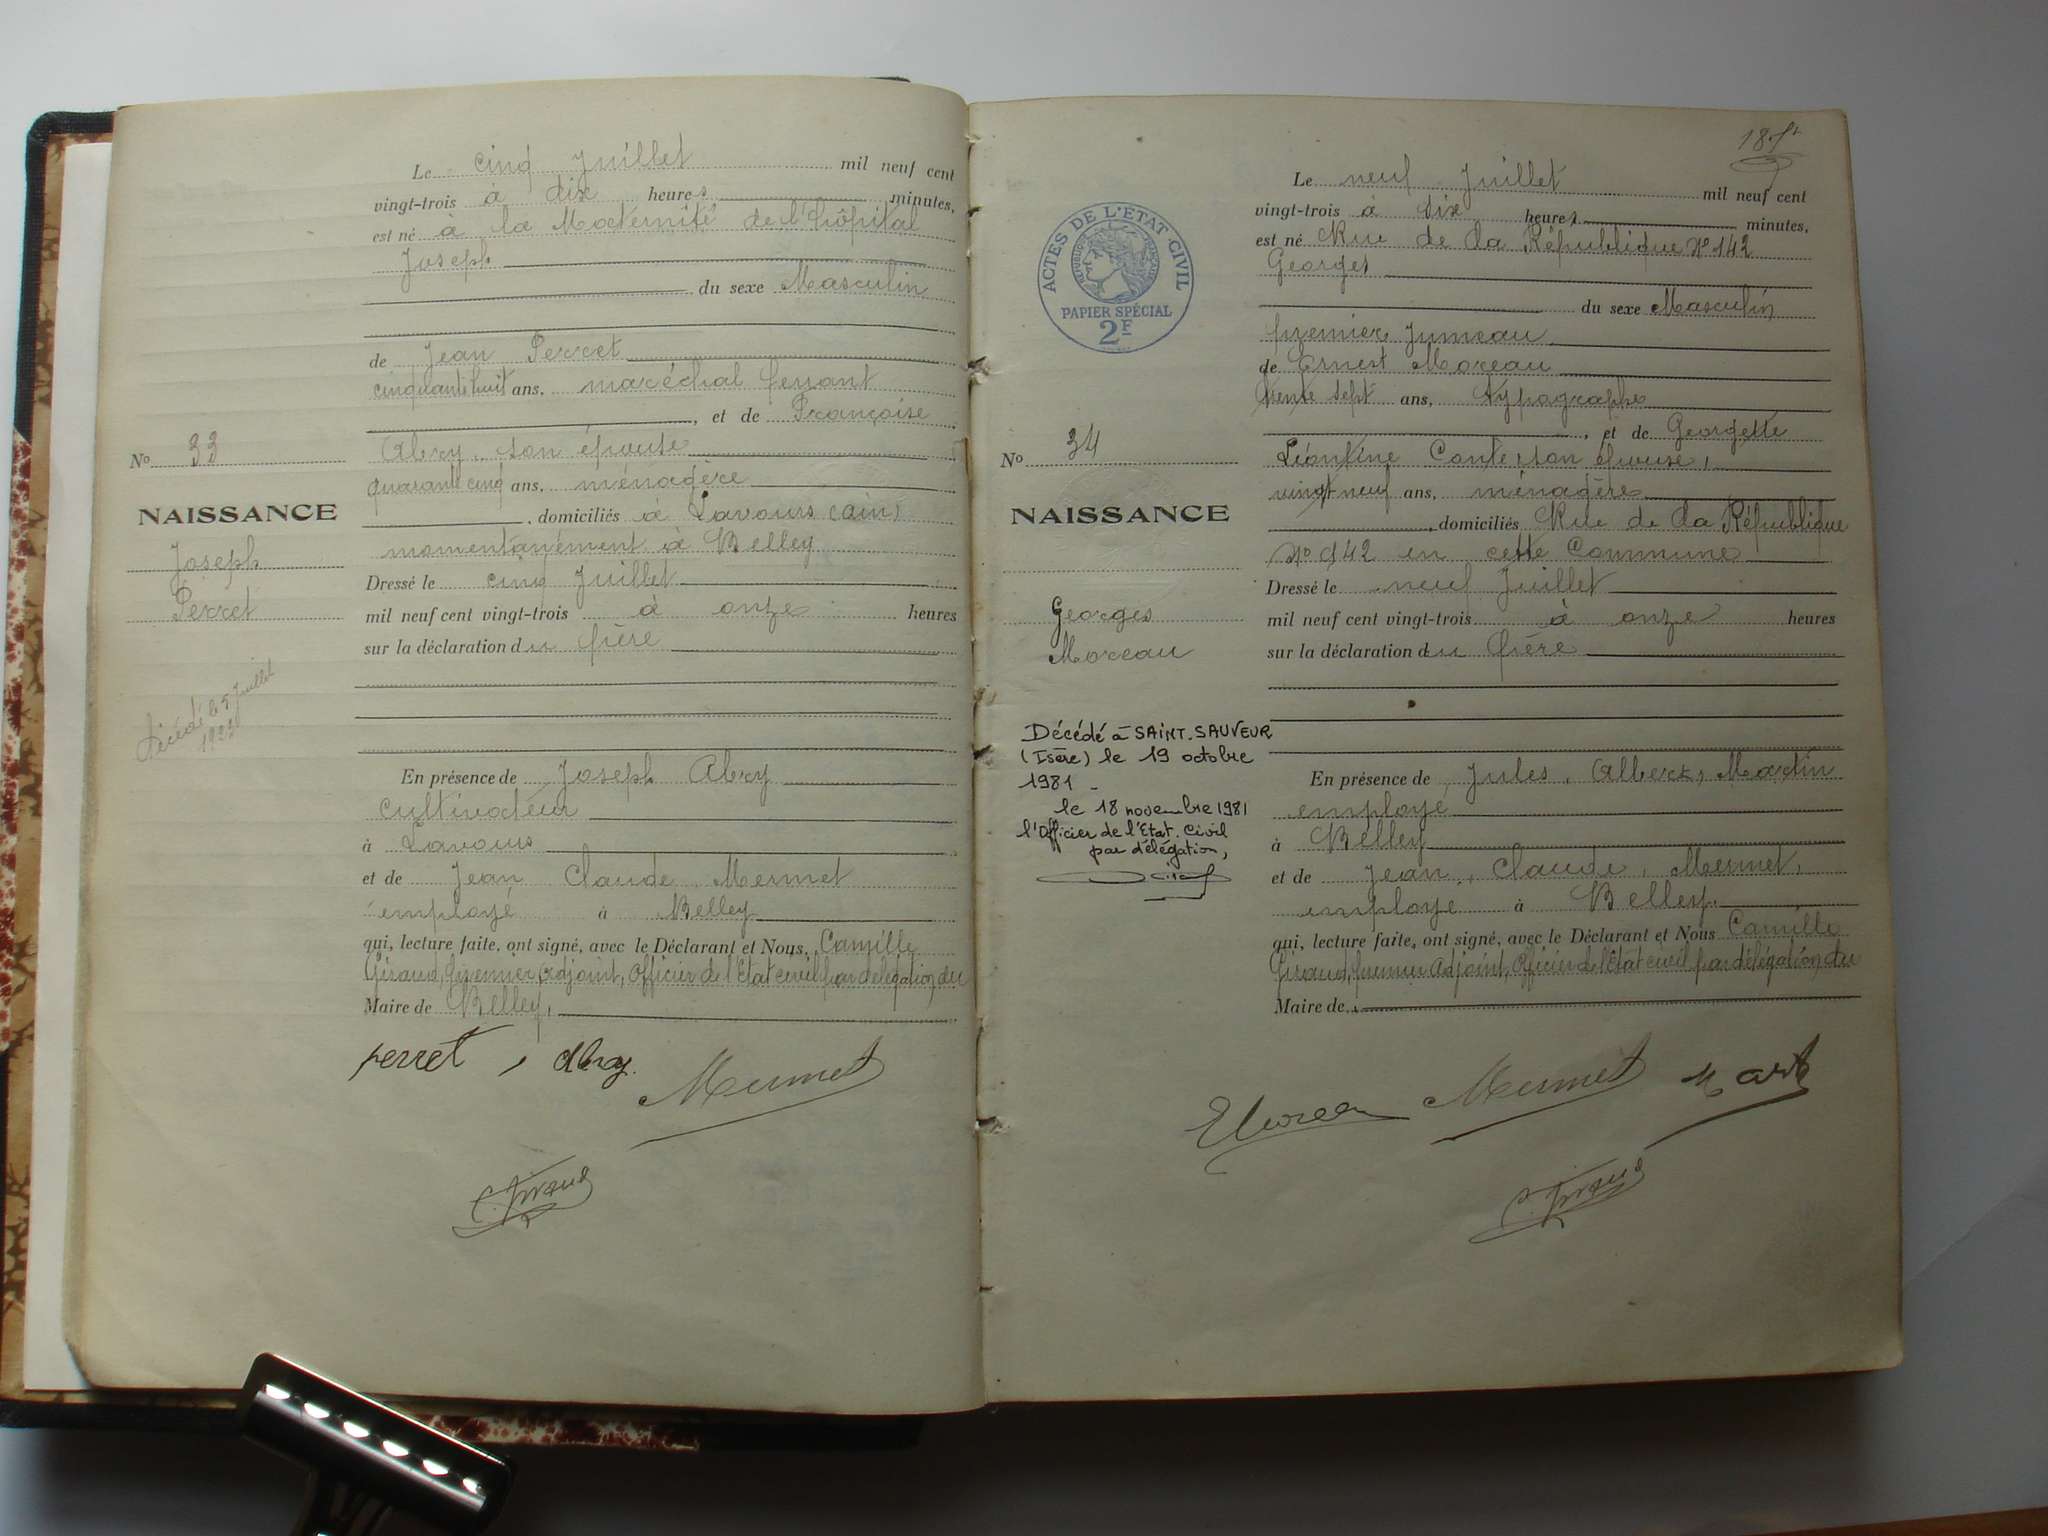 Le cinq Juillet mil neuf cent
vingt-trois à dix heures minutes,
est né à la Maternité de l'hôpital
Joseph
du sexe Masculin
de Jean Perret
cinquante huit ans, maréchal ferrant
, et de Françoise
Abry, son épouse
quarante cinq ans, ménagère
, domiciliés à Lavours (ain)
momentanément à Belley
Dressé le cinq Juillet
mil neuf cent vingt-trois à onze heures
sur la déclaration du père
En présence de Joseph Abry
cultivateur
à Lavours
et de Jean Claude Mermet
employé à Belley
qui, lecture faite, ont signé, avec le Déclarant et Nous, Camille
Giraud, premier Adjoint, Officier de l'Etat civil par délégation du
Maire de Belley,
perret , Abry.
Mermet
C. Giraud
No 33
NAISSANCE
Joseph
Perret
Décédé le 5 Juillet
1923
Le neuf Juillet mil neuf cent
vingt-trois à dix heures minutes,
est né Rue de la République No 142
Georges
du sexe Masculin
premier Jumeau
de Ernest Moreau
trente sept ans, typographe
, et de Georgette
Léontine Conte, son épouse,
vingt neuf ans, ménagère
, domiciliés Rue de la République
No 142 en cette Commune
Dressé le neuf Juillet
mil neuf cent vingt-trois à onze heures
sur la déclaration du père
En présence de Jules, Albert, Martin
employé
à Belley
et de Jean, Claude, Mermet,
employé à Belley.
qui, lecture faite, ont signé, avec le Déclarant et Nous Camille
Giraud, premier Adjoint, Officier de l'Etat civil par délégation du
Maire de
EMoreau Mermet
C. Giraud
ACTES DE L'ÉTAT CIVIL
RÉPUBLIQUE FRANÇAISE
PAPIER SPÉCIAL
2F
No 34
NAISSANCE
Georges
Moreau
Décédé à SAINT.SAUVEUR
(Isère) le 19 octobre
1981 -
le 18 novembre 1981
l'Officier de l'Etat. Civil
par délégation,